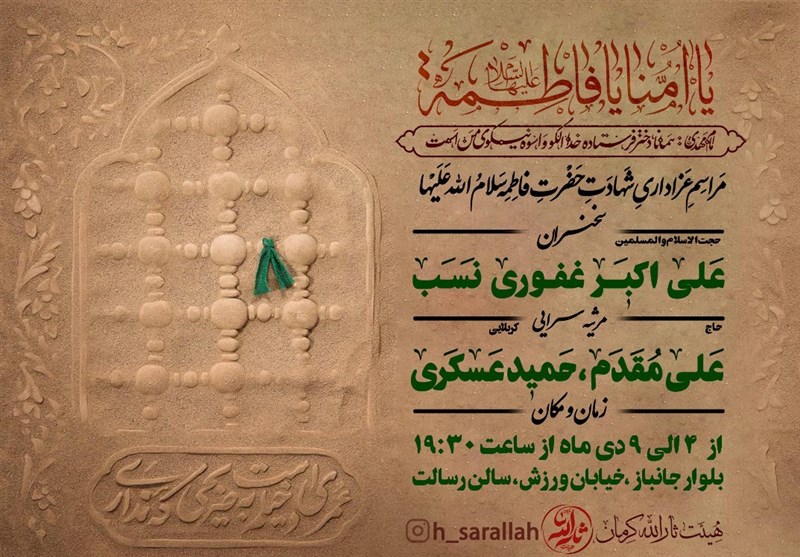 یا اُمَّنا یا فاطِمَة علیها السلام
امام مهدی: همانا دختر فرستاده خدا الگو و اسوه نیکوی من است
مَراسِمِ عَزاداریِ شَهادَتِ حَضرَتِ فاطِمِه سَلامُ اللهِ عَلَیها
سخنران
حجت‌الاسلام‌والمسلمین
عَلی اکبَر غفوری نَسَب
حاج مرثیه سرایی کربلایی
عَلی مُقَدَم، حَمید عَسکَری
زمان و مکان
از ۴ الی ۹ دی ماه از ساعت ۱۹:۳۰
بلوار جانباز ،خیابان ورزش، سالن رسالت
هیئت ثارالله کرمان ثارالله h_sarallah
عمریست دخیلم به ضریحی که نداری